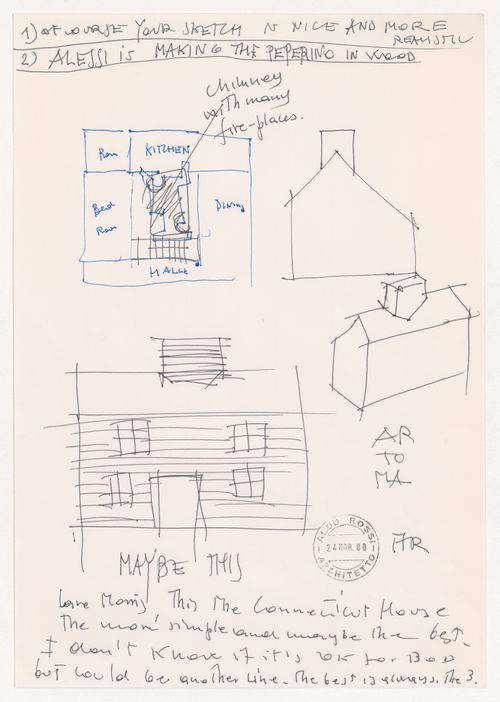 1) OF COURSE YOUR SKETCH IS NICE AND MORE
REALISTIC
2) ALESSI IS MAKING THE PEPERINO IN WOOD
Chimney
with many
fire-places.
Room
KITCHEN
Bed
Room
Dining
HALL
AR
TO
MA
ALDO ROSSI
24 FEBR. 88
ARCHITETTO
AR
MAYBE THIS
This the Connecticut House
the more simple and maybe the best.
I don't know if it's OK for
but could be another line. The best is always. the 3.